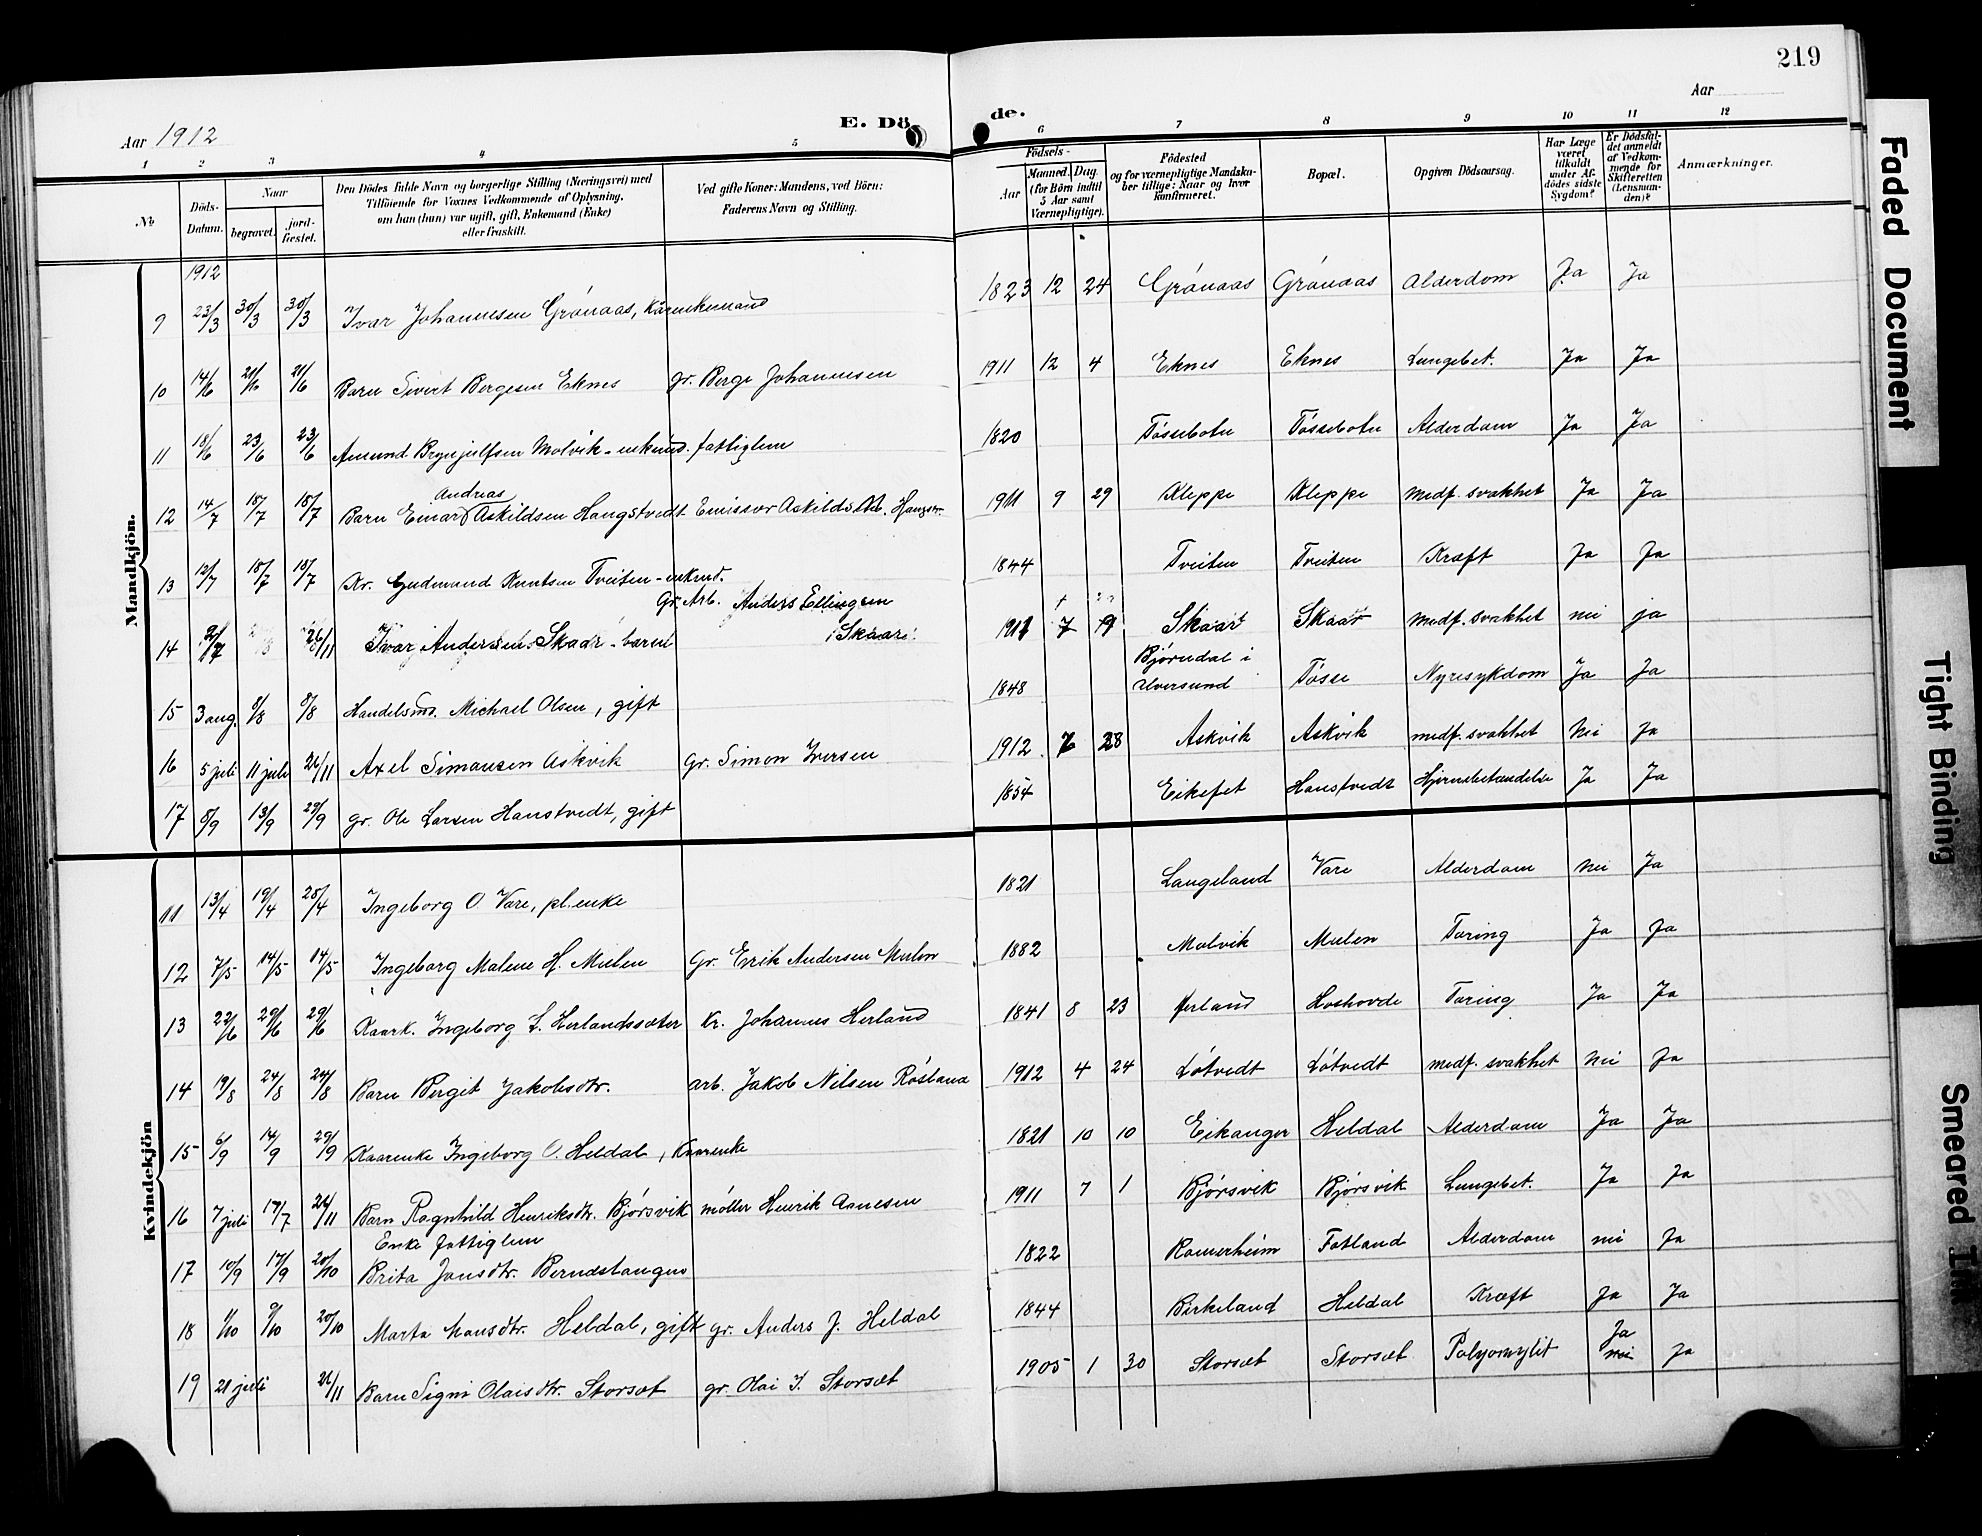 219
Aar 1912
E. Dö
de.
Aar
1 2 3 4 5 6 7 8 9 10 11 12
No.
Döds-Datum.
Naar
begravet.
jord-fæstet.
Den Dödes fulde Navn og borgerlige Stilling (Næringsvei) med
Tilföiende for Voxnes Vedkommende af Oplysning,
om han (hun) var ugift, gift, Enkemand (Enke)
eller fraskilt.
Ved gifte Koner: Mandens, ved Börn:
Faderens Navn og Stilling.
Födsels-
Aar
Maaned. Dag.
(for Börn indtil
5 Aar samt
Værnepligtige).
Födested
og for værnepligtige Mandska-
ber tillige: Naar og hvor
konfirmeret.
Bopæl.
Opgiven Dödsaarsag.
Har Læge
været
tilkaldt
under Af-
dödes sidste
Sygdom?
Er Dödsfal-
det anmeldt
af Vedkom-
mende for
Skifteretten
(Lensman-
den)?
Anmærkninger.
Mandkjön.
1912
9 23/3 30/3 30/3 Ivar Johannesen Grönaas, Kårenkemand 1823 12 24 Grönaas Grönaas Alderdom Ja Ja
10 14/6 21/6 21/6 Barn Sivert Bergesen Eknes gr. Berge Johannesen 1911 12 4 Eknes Eknes Lungebet. Ja Ja
11 18/6 23/6 23/6 Amund Brynjulfsen Molvik - enkmd. fattiglem 1820 Tössebotn Tössebotn Alderdom Ja Ja
Andreas
12 14/7 18/7 18/7 Barn Einar Askildsen Hangstvedt Emissær Askild 1911 9 29 Kleppe Kleppe medf. svakhet Ja Ja
13 12/7 18/7 18/7 Kr. Gudmund Knutsen Tveiten - enkmd. 1844 Tveiten Tveiten Kræft Ja Ja
Gr. Arb. Anders Ellingsen
14 26/11 Ivar Andersen Skaar - barn i Skaar. 7 Skaar Skaar medf. svakhet nei ja
15 3 aug. 8/8 8/8 Handelsmd. Michael Olsen, gift 1848 Björndal i Alversund Tösse Nyresykdom Ja Ja
16 5 juli 11 juli 26/11 Axel Simonsen Askvik gr. Simon Iversen 1912 28 Askvik Askvik medf. svakhet Nei Ja
17 8/9 13/9 29/9 gr. Ole Larsen Hanstvedt, gift 1854 Eikefet Hanstvedt Hjernebetændelse Ja Ja
Kvindekjön
11 13/4 19/4 28/4 Ingeborg O. Vare, pl. enke 1821 Langeland Vare Alderdom nei Ja
12 7/5 14/5 14/5 Ingeborg Malene H. Mulen Gr. Erik Andersen Mulen 1882 Molvik Mulen Tæring Ja Ja
13 22/6 29/6 29/6 Kaark. Ingeborg L. Herlandssæter Kr. Johannes Herland 1841 8 23 Herland Hoshovde Tæring Ja Ja
14 19/8 24/8 24/8 Barn Bergit Jakobsdtr. arb. Jakob Nilsen Rösland 1912 4 24 Lötvedt Lötvedt medf. svakhet nei Ja
15 6/9 14/9 29/9 Kaarenke Ingeborg O. Heldal, Kaarenke 1821 10 10 Eikanger Heldal Alderdom Ja Ja
16 7 juli 17/7 26/11 Barn Ragnhild Henriksdtr. Björsvik möller Henrik Aanesen 1911 7 1 Björsvik Björsvik Lungebet. Ja Ja
Enke fattiglem
17 10/9 17/9 20/10 Brita Jonsdtr. Berndstangen 1822 Romerheim Fotland Alderdom nei Ja
18 1/10 9/10 20/10 Marta Monsdtr. Heldal, gift gr. Anders J. Heldal 1844 Birkeland Heldal Kræft Ja Ja
19 21 juli 26/11 Barn Signi Olaisdtr. Storsæt gr. Olai I. Storsæt 1905 1 30 Storsæt Storsæt Polyomylit Ja nei Ja
Faded Document
Tight Binding
Smeared Ink